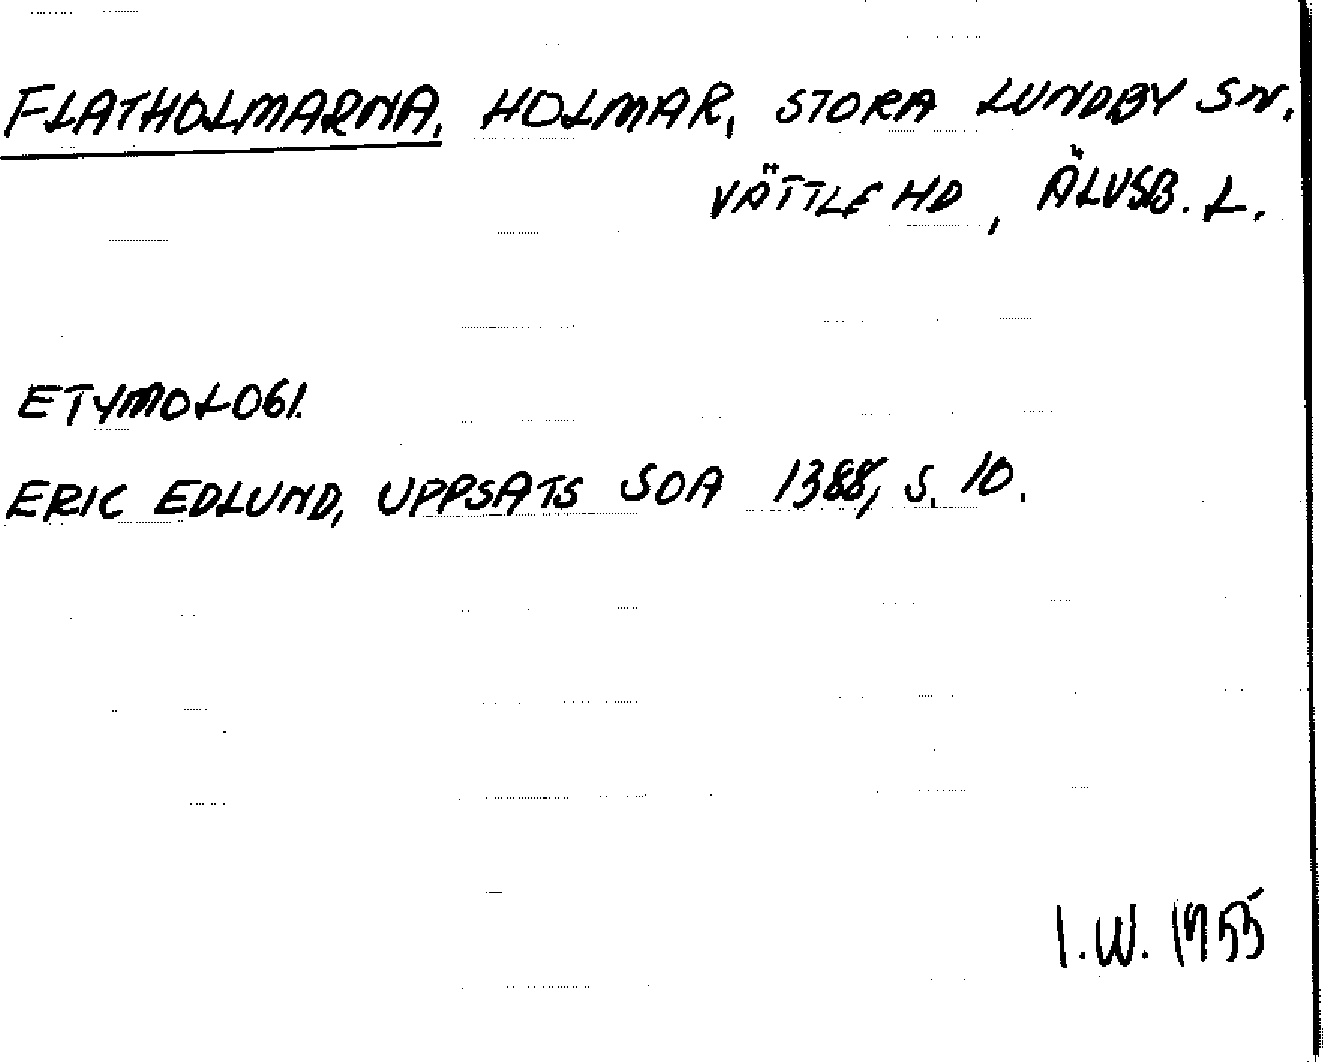 FLATHOLMARNA, HOLMAR, STORA LUNDBY SN.
VÄTTLE HD, ÄLVSB. L.
ETYMOLOGI.
ERIC EDLUND, UPPSATS SOA 1388, S. 10.
I.W. 1955